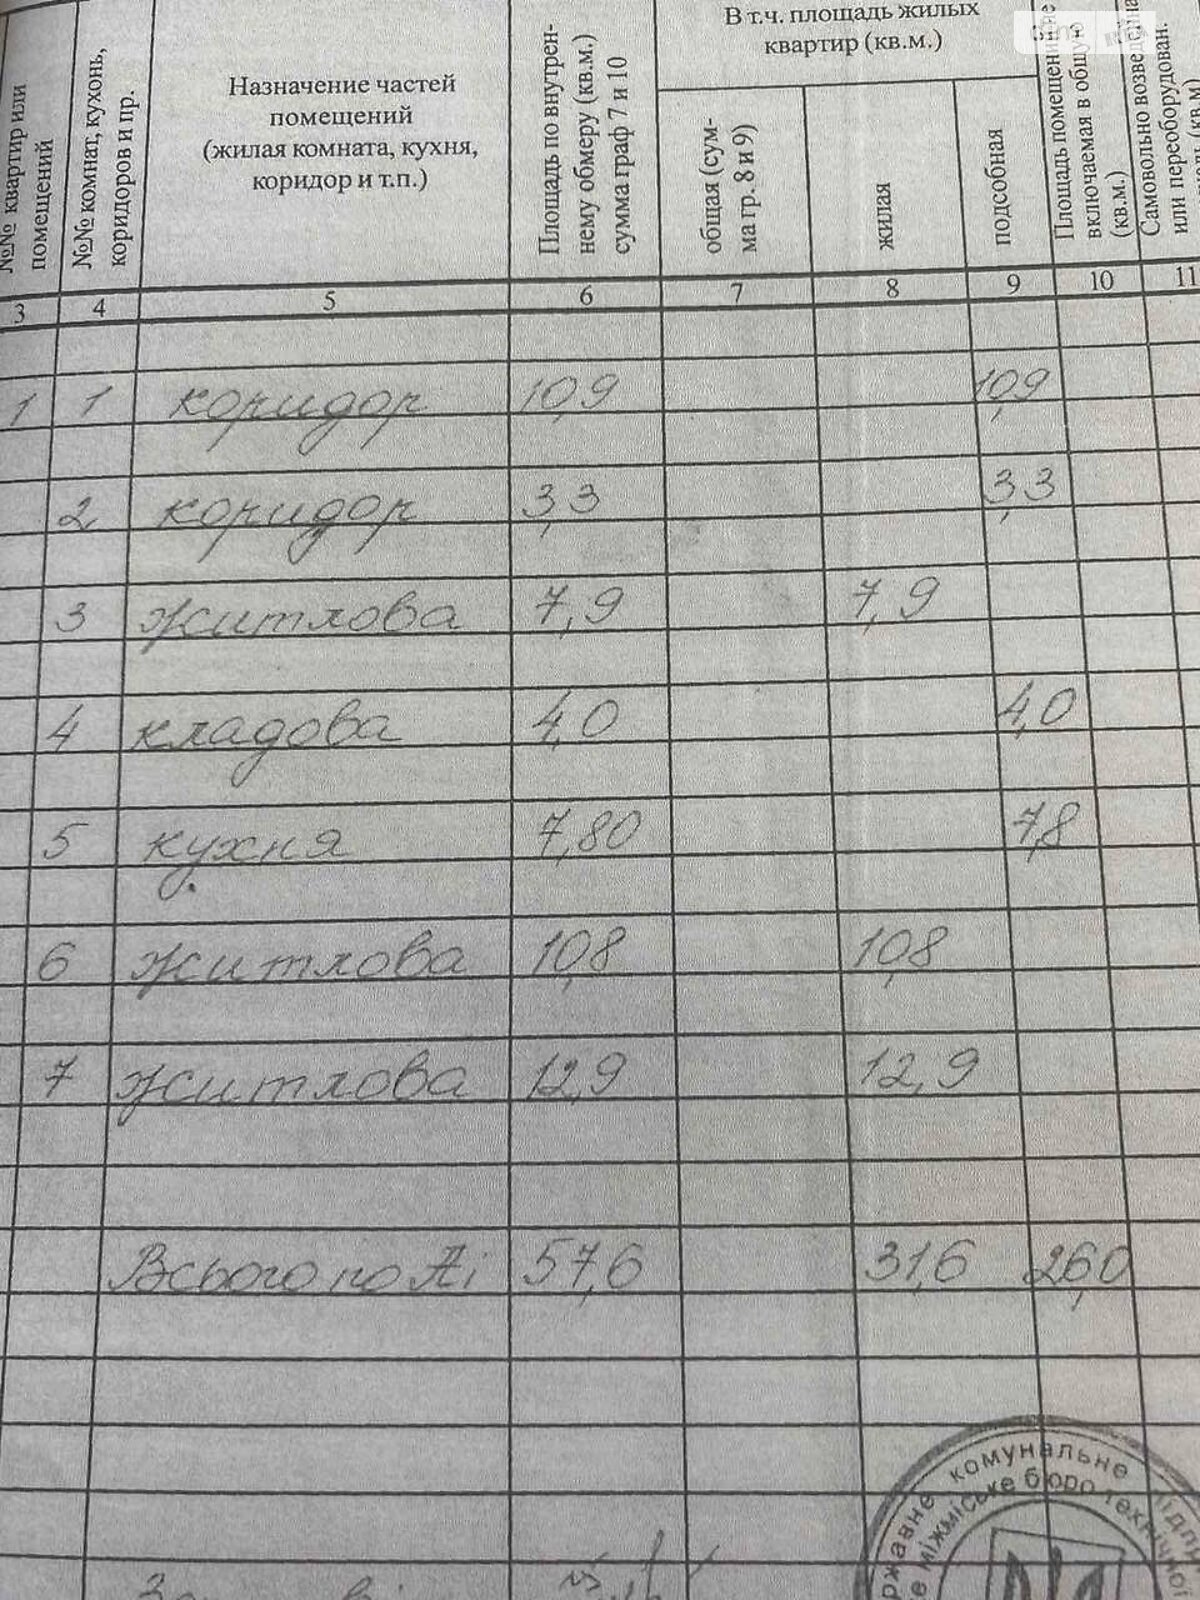 №№ квартир или помещений
№№ комнат, кухонь, коридоров и пр.
Назначение частей
помещений
(жилая комната, кухня,
коридор и т.п.)
Площадь по внутрен-
нему обмеру (кв.м.)
сумма граф 7 и 10
В т.ч. площадь жилых
квартир (кв.м.)
общая (сум-
ма гр. 8 и 9)
жилая
подсобная
Площадь помещения не
включаемая в общую
(кв.м.)
Самовольно
или переоборудован.
(кв.м)
3 4 5 6 7 8 9 10 11
1 1 коридор 10,9 10,9
2 коридор 3,3 3,3
3 житлова 7,9 7,9
4 кладова 4,0 4,0
5 кухня 7,80 7,8
6 житлова 10,8 10,8
7 житлова 12,9 12,9
Всього по Аі 57,6 31,6 26,0
комунальне
міжміське бюро технічної